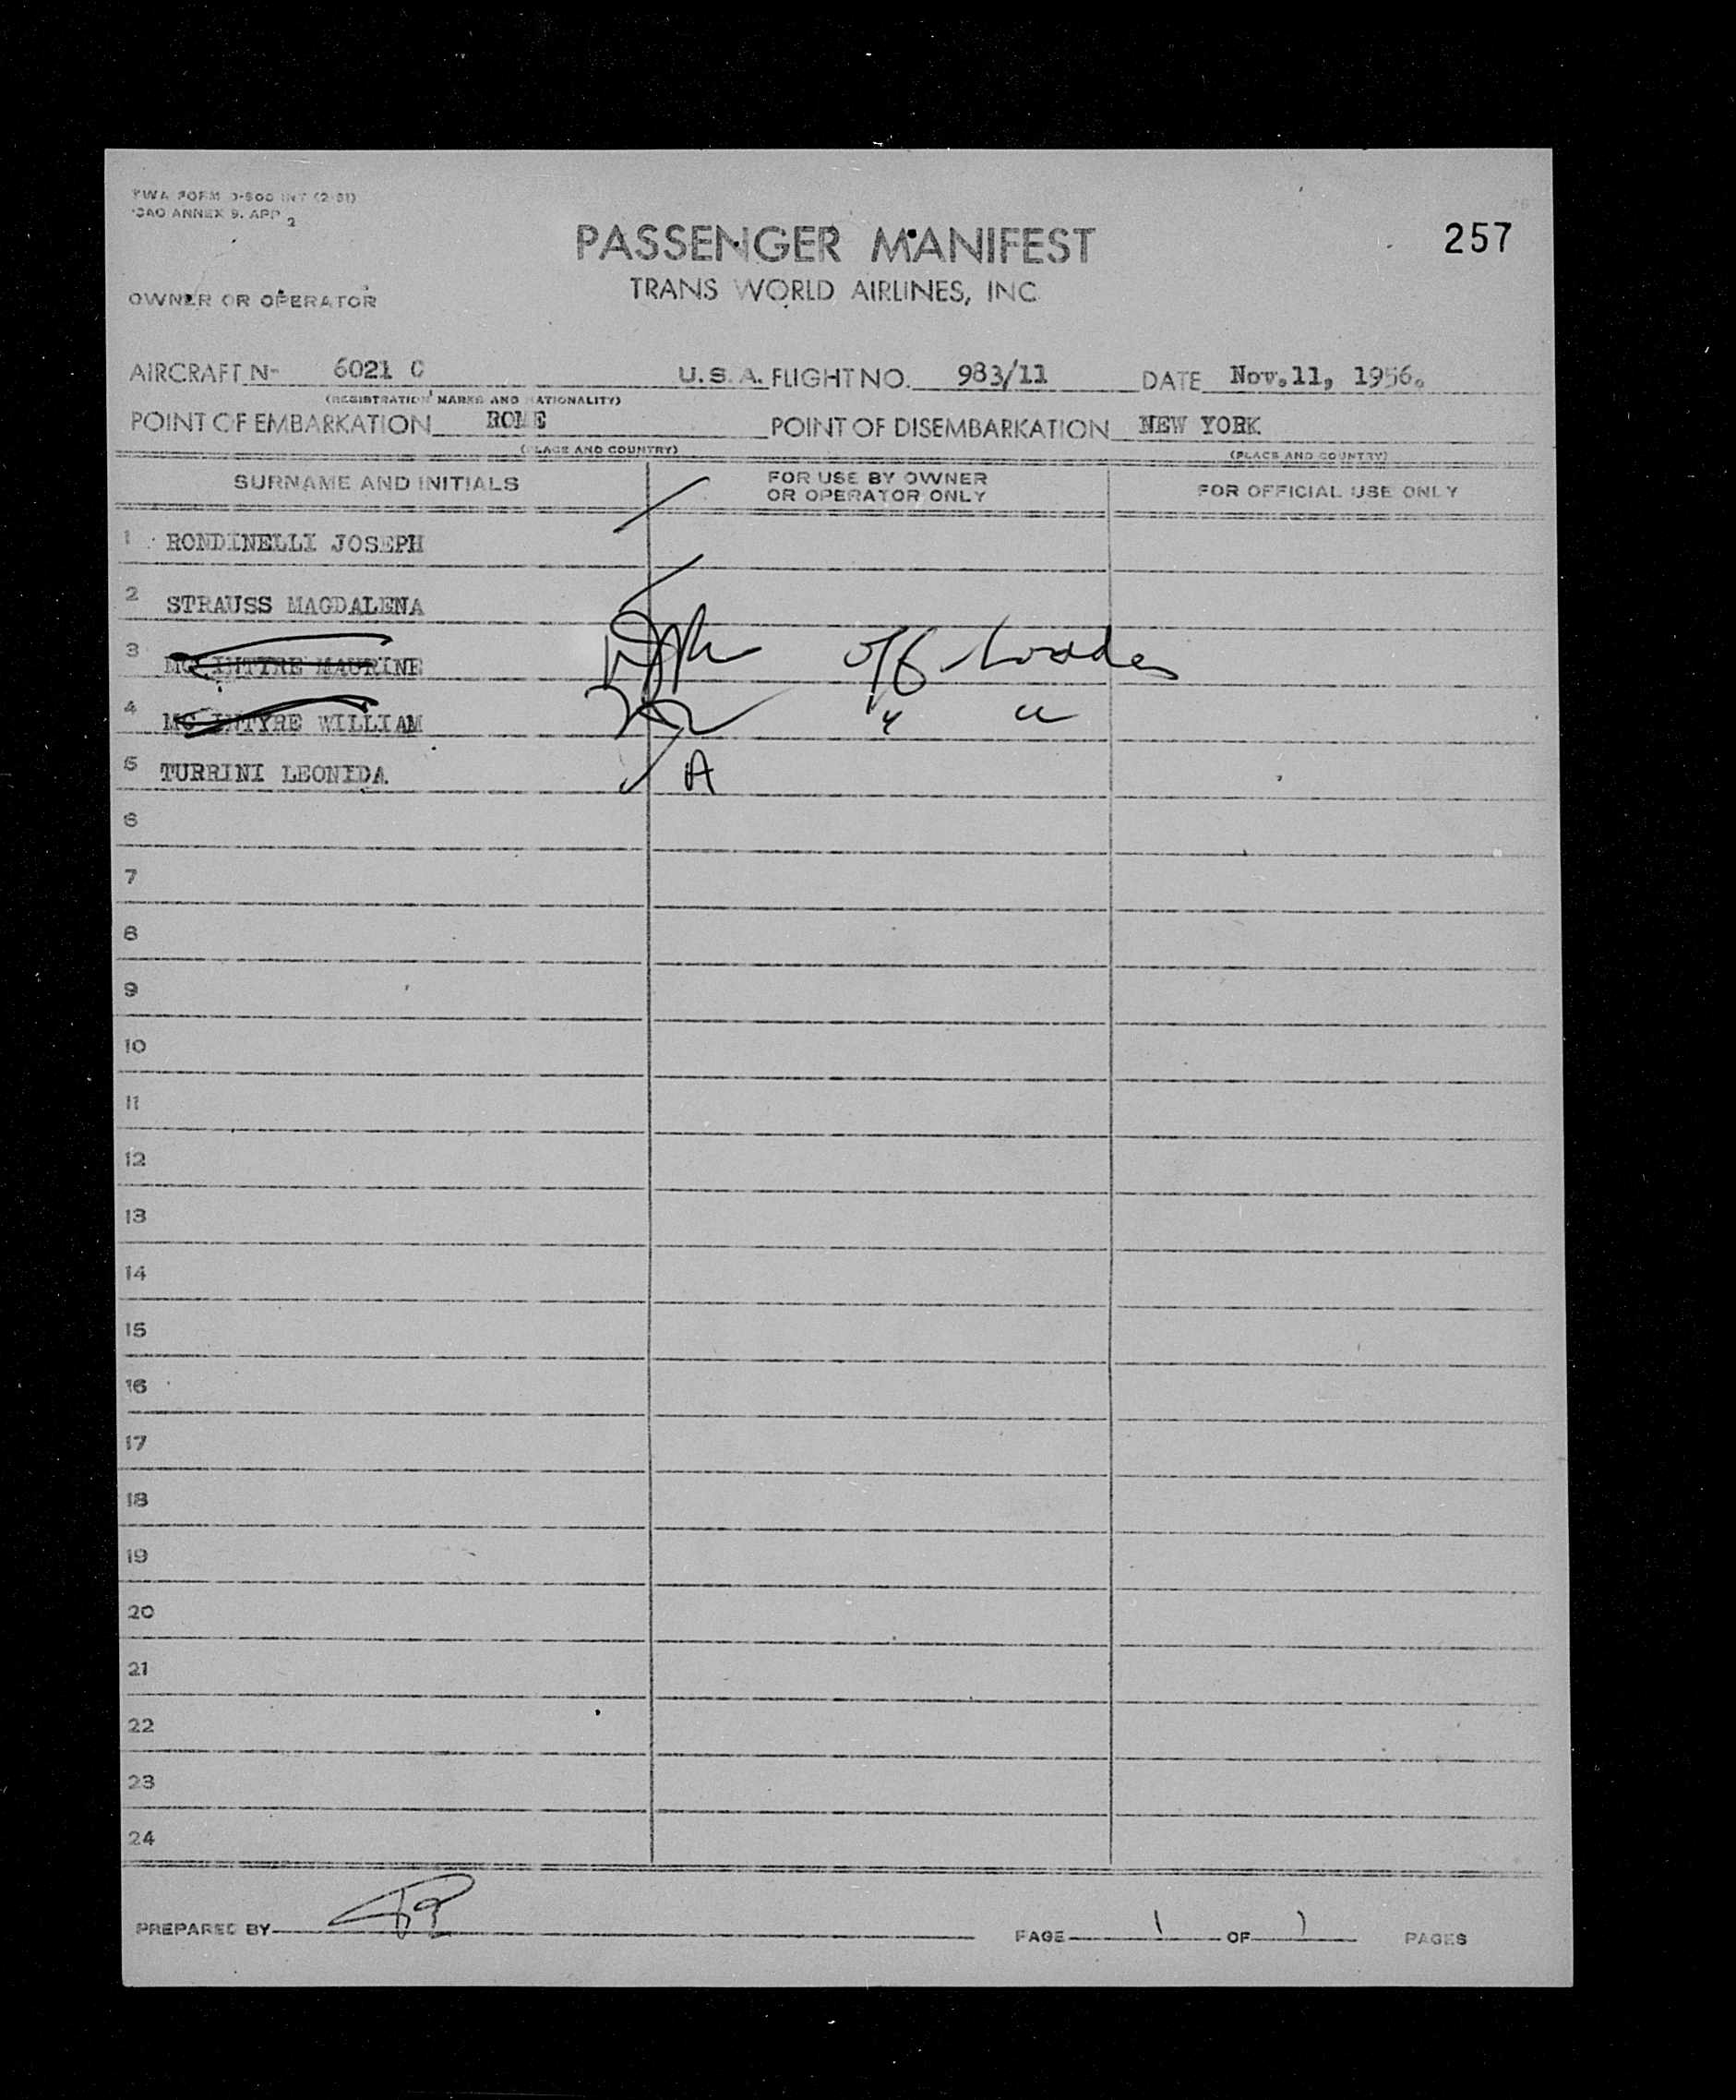 TWA FORM
ICAO ANNEX 9. APP 2
PASSENGER MANIFEST
257
TRANS WORLD AIRLINES, INC
OWNER OR OPERATOR
AIRCRAFT N- 6021 C U. S. A. FLIGHT NO. 983/11 DATE Nov.11, 1956.
(REGISTRATION MARKS AND NATIONALITY)
POINT OF EMBARKATION ROME POINT OF DISEMBARKATION NEW YORK
(PLACE AND COUNTRY) (PLACE AND COUNTRY)
SURNAME AND INITIALS FOR USE BY OWNER OR OPERATOR ONLY FOR OFFICIAL USE ONLY
1 RONDINELLI JOSEPH
2 STRAUSS MAGDALENA
3 MC INTYRE MAURINE off
4 MC INTYRE WILLIAM " "
5 TURRINI LEONIDA A
6
7
8
9
10
11
12
13
14
15
16
17
18
19
20
21
22
23
24
PREPARED BY PAGE 1 OF 1 PAGES